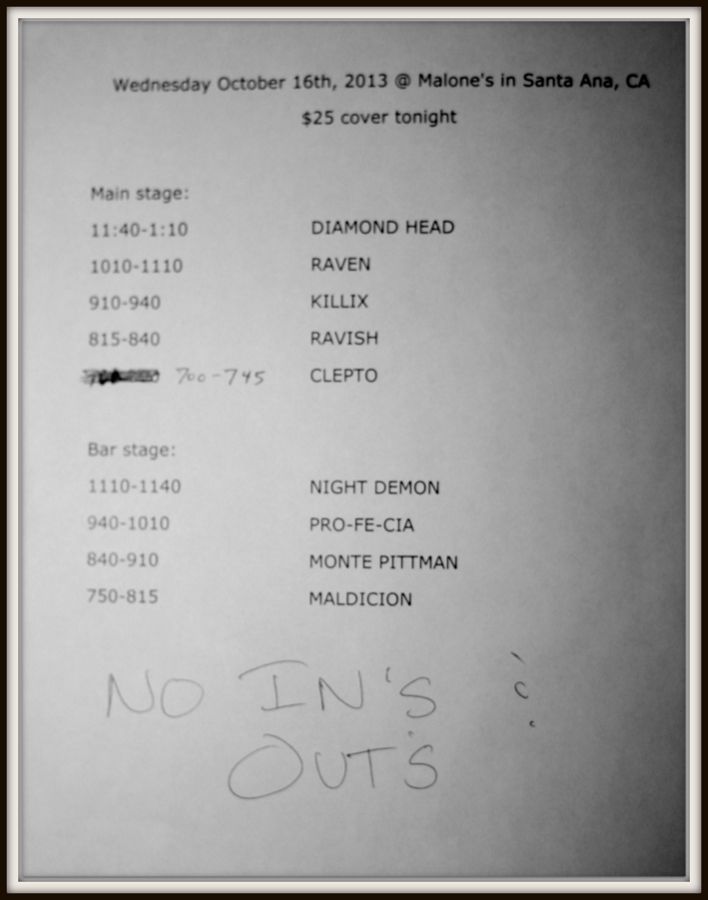 Wednesday October 16th, 2013 @ Malone's in Santa Ana, CA
$25 cover tonight
Main stage:
11:40-1:10 DIAMOND HEAD
1010-1110 RAVEN
910-940 KILLIX
815-840 RAVISH
700-745 CLEPTO
Bar stage:
1110-1140 NIGHT DEMON
940-1010 PRO-FE-CIA
840-910 MONTE PITTMAN
750-815 MALDICION
NO IN'S &
OUT'S